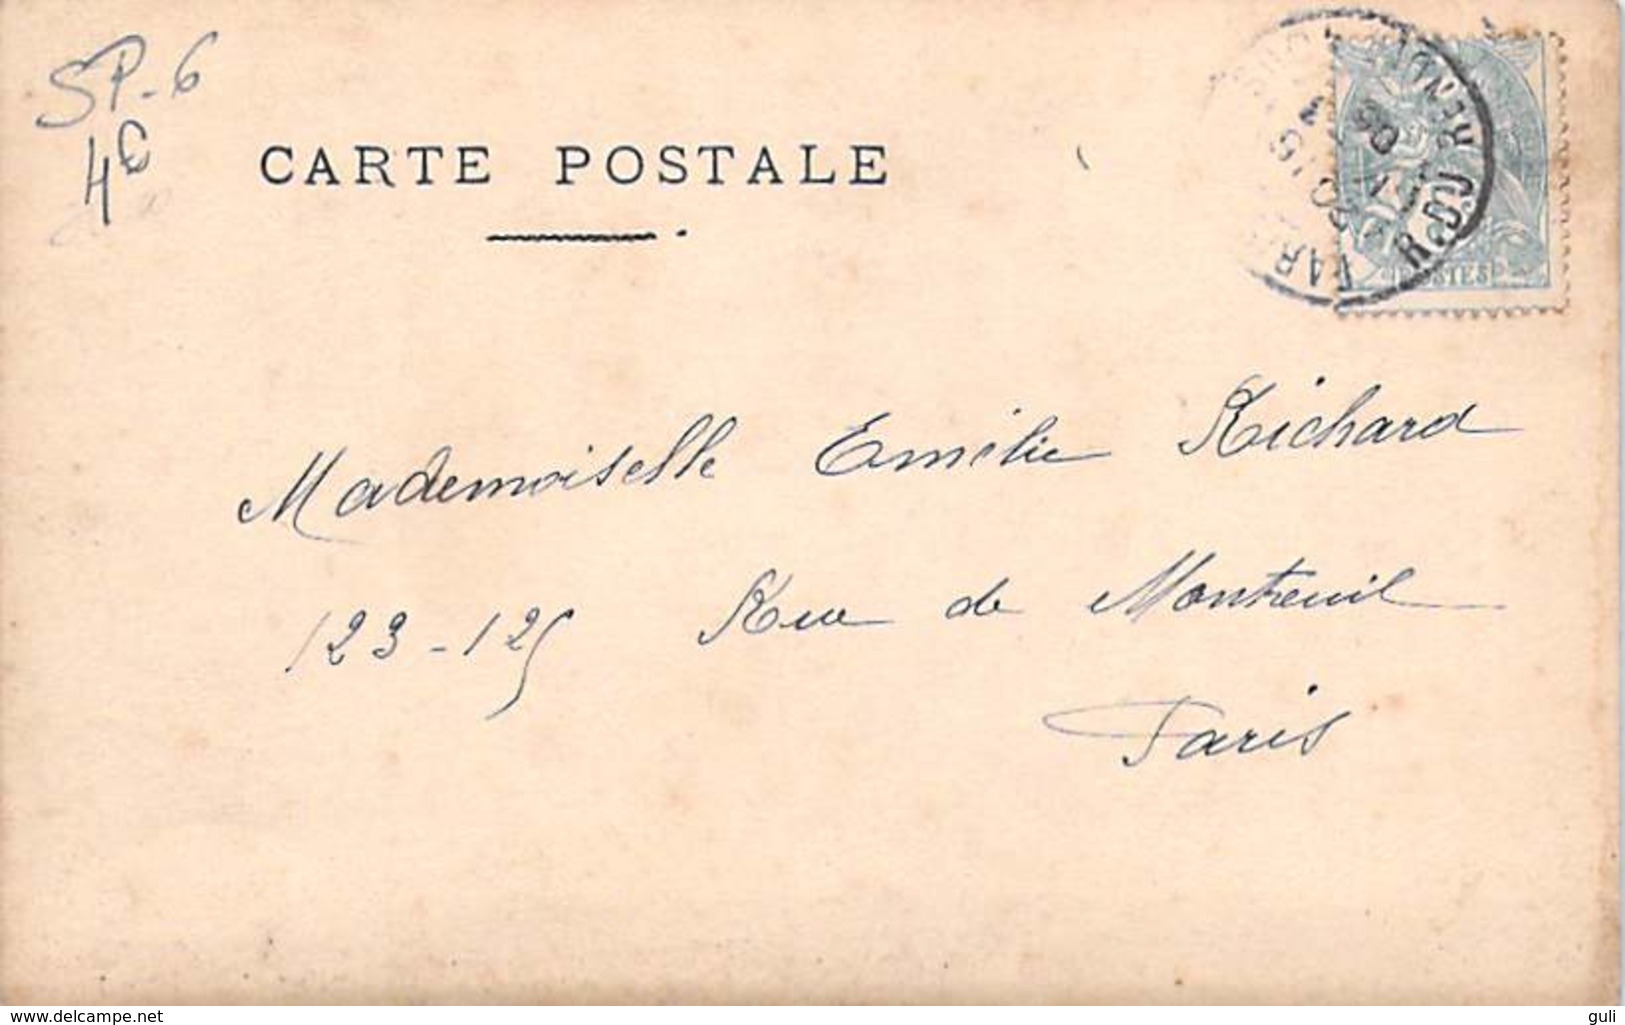 SP-6
4€
CARTE POSTALE
Mademoiselle Emilie Richard
123-125 Rue de Montreuil
Paris
POSTES
www.delcampe.net
guli